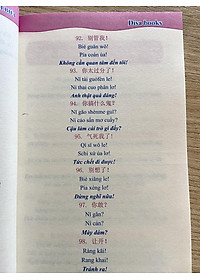 Disa books
92. 别管我!
Bié guǎn wǒ!
Pía coán úa!
Không cần quan tâm đến tôi!
93. 你太过分了!
Nǐ tài guòfèn le!
Nỉ thai cuô phân lơ!
Anh thật quá đáng!
94. 你搞什么鬼?
Nǐ gǎo shénme guǐ?
Nỉ cảo sấn mơ cuẩy?
Cậu làm cái trò gì đấy?
95. 气死我了!
Qì sǐ wǒ le!
Chi xử ủa lơ!
Tức chết đi được!
96. 别想了!
Bié xiǎng le!
Pía xẻng lơ!
Đừng nghĩ nữa!
97. 你敢?
Nǐ gǎn?
Nỉ cán?
Mày dám?
98. 让开!
Ràng kāi!
Rang khai!
Tránh ra!